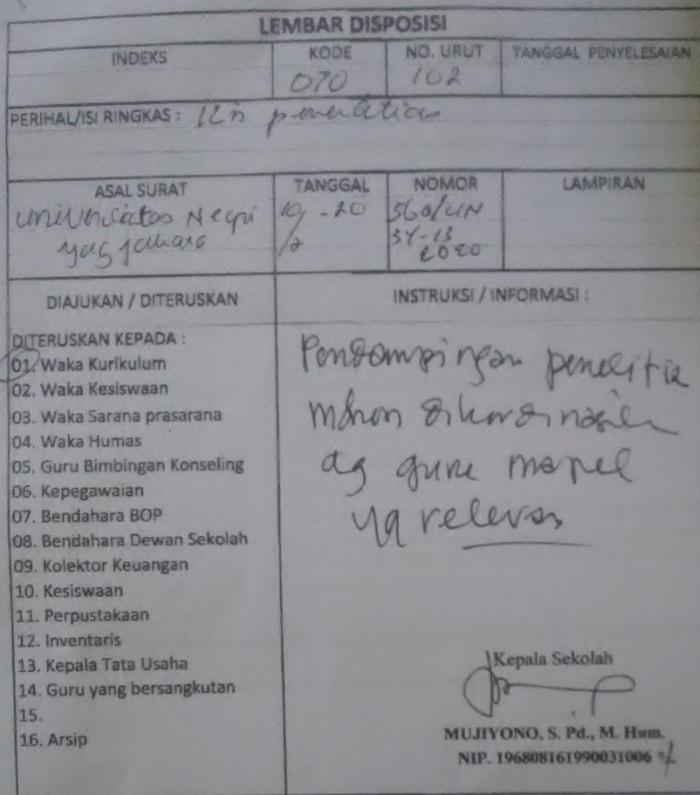 LEMBAR DISPOSISI
INDEKS KODE NO. URUT TANGGAL PENYELESAIAN
070 102
PERIHAL/ISI RINGKAS : Izin penelitian
ASAL SURAT TANGGAL NOMOR LAMPIRAN
Universitas Negri 10 - 20 560/UN
yogjakara /2 34-13
2020
DIAJUKAN / DITERUSKAN INSTRUKSI / INFORMASI :
DITERUSKAN KEPADA :
01. Waka Kurikulum
02. Waka Kesiswaan
03. Waka Sarana prasarana
04. Waka Humas
05. Guru Bimbingan Konseling
06. Kepegawaian
07. Bendahara BOP
08. Bendahara Dewan Sekolah
09. Kolektor Keuangan
10. Kesiswaan
11. Perpustakaan
12. Inventaris
13. Kepala Tata Usaha
14. Guru yang bersangkutan
15.
16. Arsip
Pendampingan penelitia
mohon dikordinasikan
dg guru mapel
yg relevan
Kepala Sekolah
MUJIYONO, S. Pd., M. Hum.
NIP. 196808161990031006